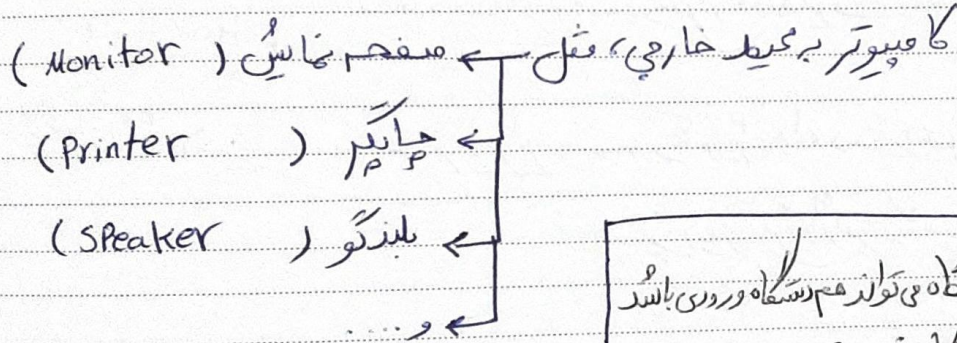 کامپیوتر به محیط خارجی، مثل ← صفحه نمایش (Monitor)
← چاپگر (Printer)
← بلندگو (Speaker)
← و.....
گاه می‌تواند هم دستگاه ورودی باشد